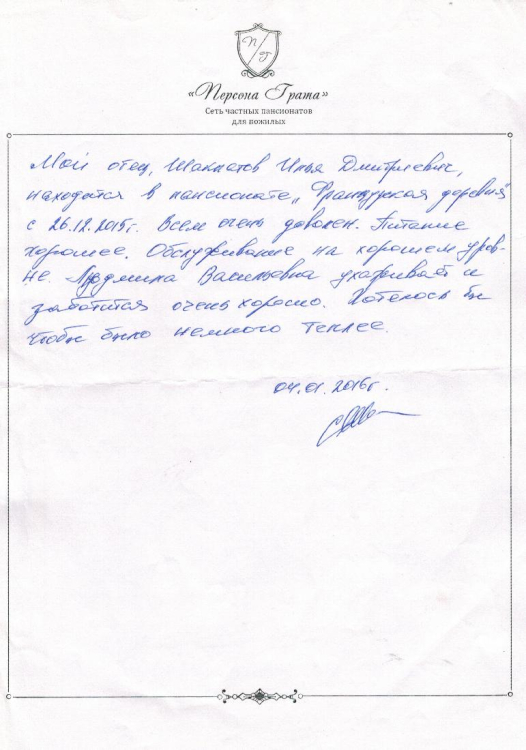 П/Г
«Персона Грата»
Сеть частных пансионатов
для пожилых
Мой отец, Илья Дмитриевич,
находится в пансионате „Французская деревня"
с 26.12.2015г. Всем очень доволен. Питание
хорошее. Обслуживание на хорошем уров-
не. Людмила Васильевна ухаживает и
заботится очень хорошо. Хотелось бы
чтобы было немного теплее.
04.01.2016г.